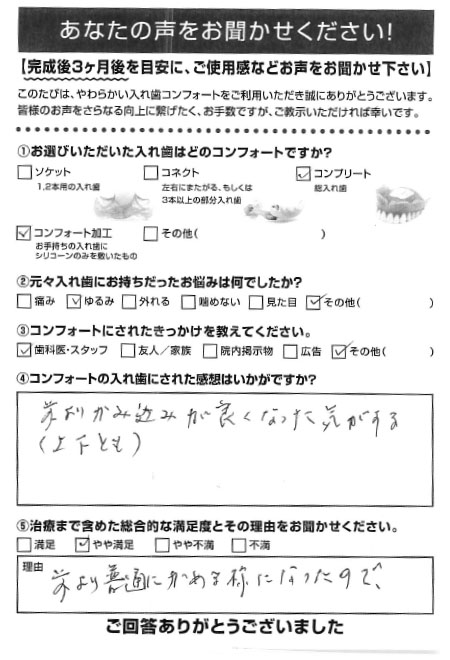 あなたの声をお聞かせください!
【完成後3ヶ月後を目安に、ご使用感などお声をお聞かせ下さい】
このたびは、やわらかい入れ歯コンフォートをご利用いただき誠にありがとうございます。
皆様のお声をさらなる向上に繋げたく、お手数ですが、ご教示いただければ幸いです。
①お選びいただいた入れ歯はどのコンフォートですか?
□ソケット □コネクト ☑コンプリート
1,2本用の入れ歯 左右にまたがる、もしくは 総入れ歯
3本以上の部分入れ歯
☑コンフォート加工 □その他( )
お手持ちの入れ歯に
シリコーンのみを敷いたもの
②元々入れ歯にお持ちだったお悩みは何でしたか?
□痛み ☑ゆるみ □外れる □噛めない □見た目 ☑その他( )
③コンフォートにされたきっかけを教えてください。
☑歯科医・スタッフ □友人/家族 □院内掲示物 □広告 ☑その他( )
④コンフォートの入れ歯にされた感想はいかがですか?
前よりかみ込みが良くなった気がする
(上下とも)
⑤治療まで含めた総合的な満足度とその理由をお聞かせください。
□満足 ☑やや満足 □やや不満 □不満
理由
前より普通にかめる様になったので、
ご回答ありがとうございました